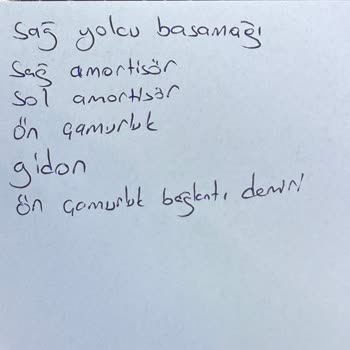 Sağ yolcu basamağı
Sağ amortisör
Sol amortisör
Ön çamurluk
gidon
ön çamurluk bağlantı demiri